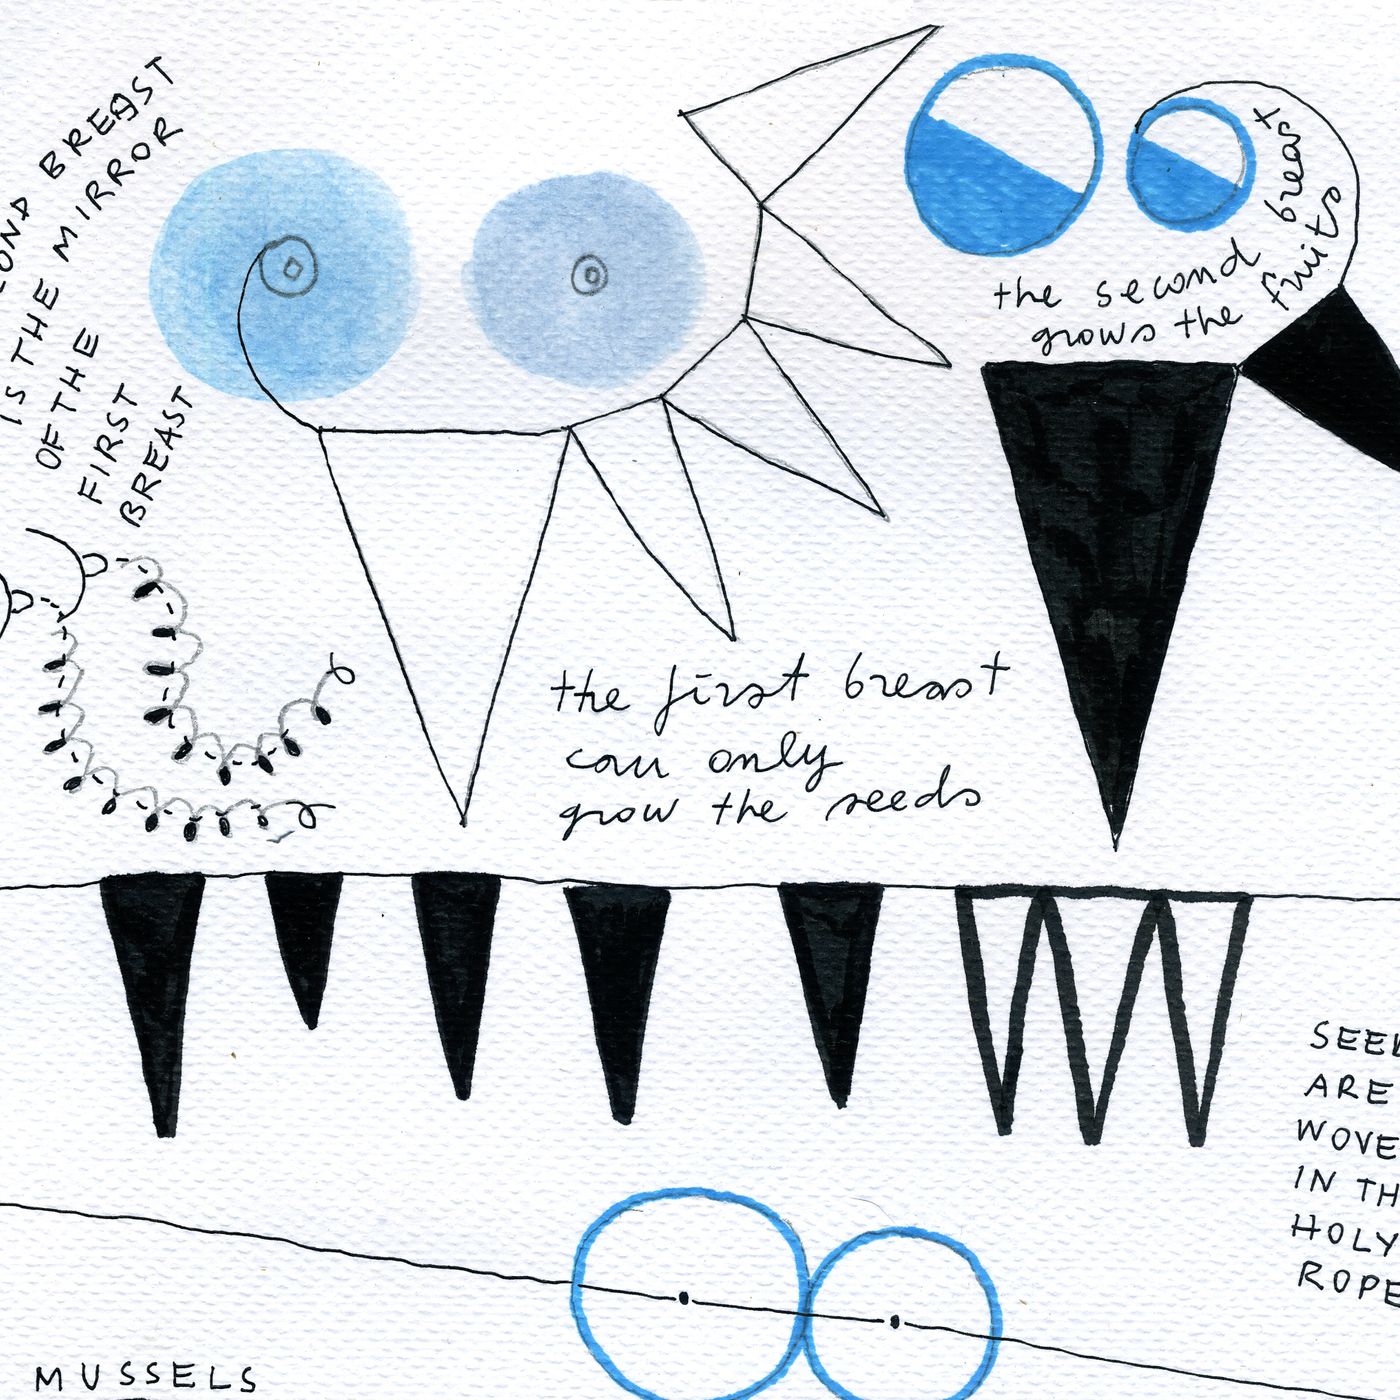 BREAST
IS THE MIRROR
OF THE
FIRST
BREAST
the second breast
grows the fruits
the first breast
can only
grow the seeds
ARE
IN
HOLY
ROPE
MUSSELS